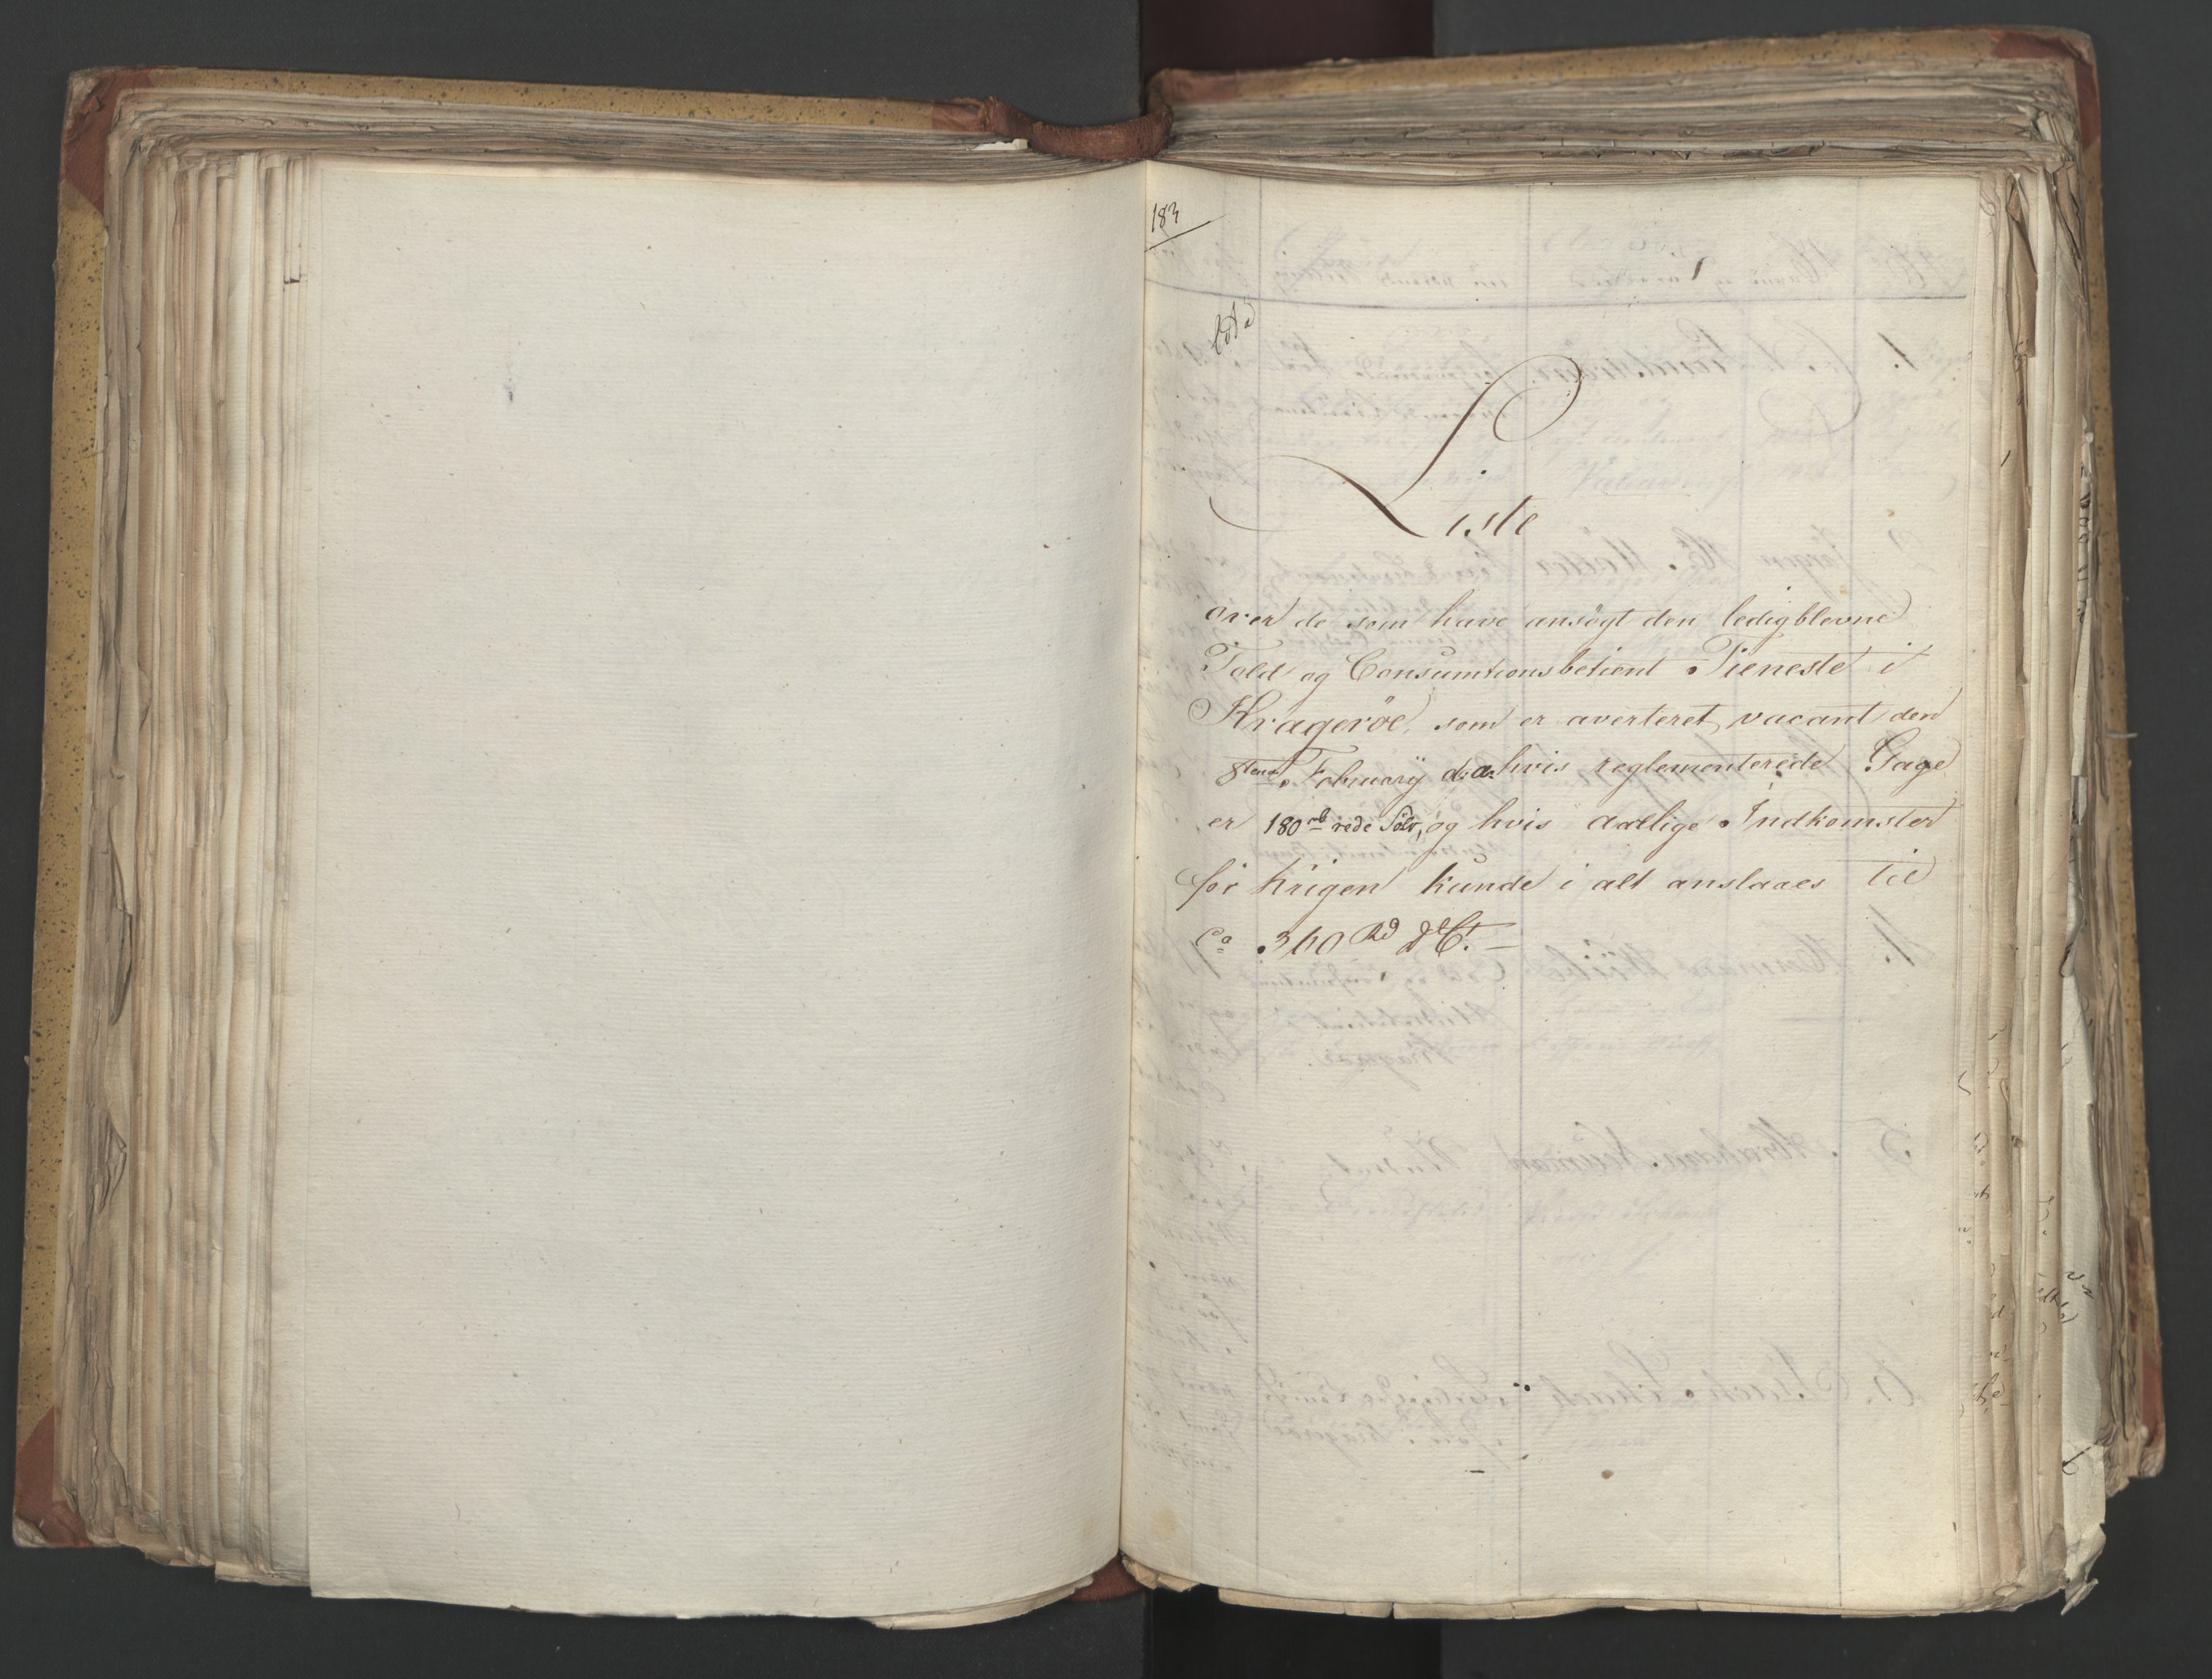 183
Liste
over de som have ansögt den ledigblevne
Told og Consumtionsbetient Tieneste i
Krageröe, som er averteret vacant den
8den February d: a: hvis reglementerede Gage
er 180 rb rede Sölv, og hvis aarlige Indkomster
för Krigen kunde i alt anslaaes til
Ca 360 Rd